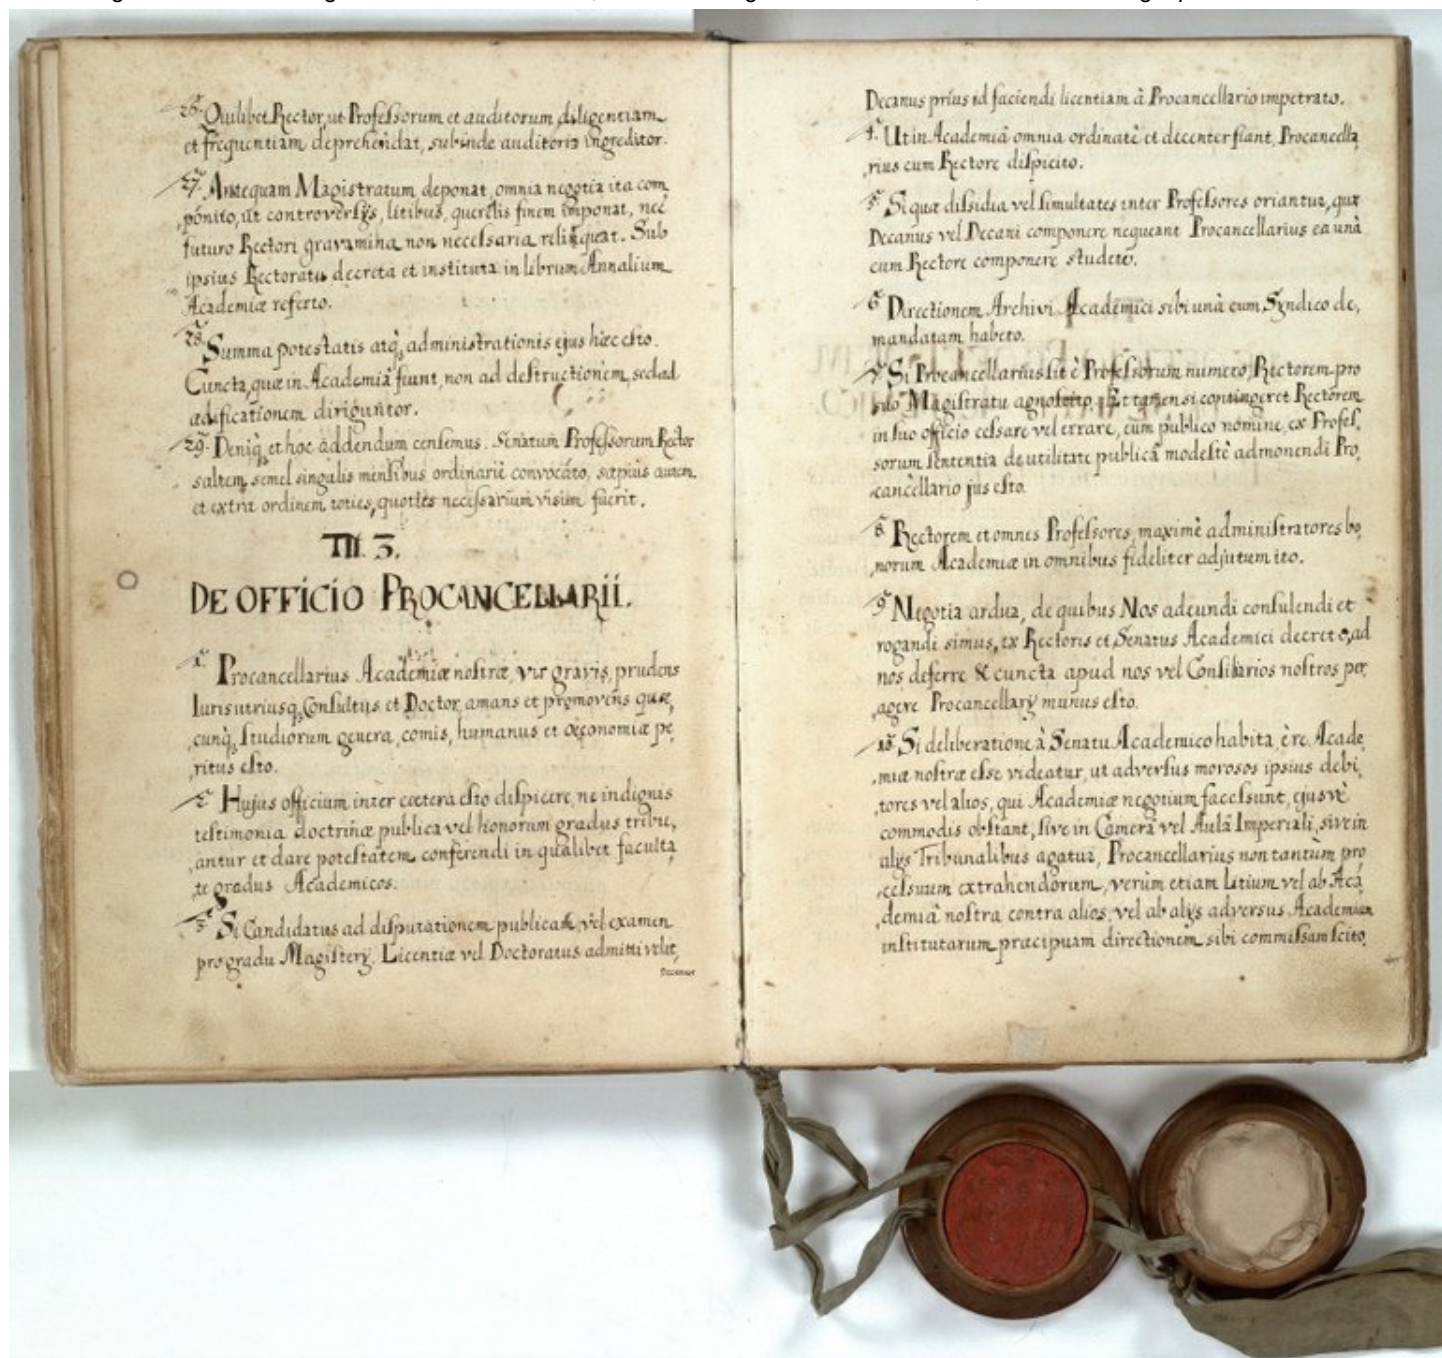 26. Quilibet Rector, ut Profeſsorum et auditorum diligentiam
et frequentiam deprehendat, subinde auditoria ingreditor.
27. Antequam Magistratum deponat, omnia negotia ita com
ponito, ut controversijs, litibus, querelis finem imponat, nec
futuro Rectori gravamina non neceſsaria relinquat. Sub
ipsius Rectoratu decreta et instituta in librum Annalium
Academiæ referto.
28. Summa potestatis atq; administrationis ejus hæc eſto.
Cuncta, quæ in Academiâ fiunt, non ad deſtructionem, sed ad
ædificationem diriguntor.
29. Deniq; et hoc addendum cenſemus. Senatum Profeſsorum Rector
saltem semel singulis menſibus ordinariè convocato, sæpius autem
et extra ordinem toties, quoties neceſsarium visum fuerit.
Tit. 3.
DE OFFICIO PROCANCELLARII.
1. Procancellarius Academiæ noſtræ, vir gravis, prudens
Iuris utriusq; Conſultus et Doctor, amans et promovens quæ,
cunq; ſtudiorum genera, comis, humanus et œconomiæ pe,
ritus eſto.
2. Hujus officium inter cœtera eſto diſpicere, ne indignis
teſtimonia doctrinæ publica vel honorum gradus tribu,
antur et dare poteſtatem conferendi in qualibet faculta,
te gradus Academicos.
3. Si Candidatus ad diſputationem publicam, vel examen
pro gradu Magiſterij, Licentiæ vel Doctoratus admitti velit,
Decanus
Decanus priùs id faciendi licentiam à Procancellario impetrato.
4. Ut in Academiâ omnia ordinatè et decenter fiant, Procancella,
rius cum Rectore diſpicito.
5. Si quæ diſsidia vel ſimultates inter Profeſsores oriantur, quæ
Decanus vel Decani componere nequeant Procancellarius ea unà
cum Rectore componere studeto.
6. Directionem Archivi Academici sibi unà cum Syndico de,
mandatam habeto.
7. Si Procancellarius ſit è Profeſsorum numero, Rectorem pro
suo Magiſtratu agnoſcito, Et tamen si contingeret Rectorem
in ſuo officio ceſsare vel errare, eum publico nomine, ex Profeſ,
sorum ſententia de utilitate publicâ modeſtè admonendi Pro,
cancellario jus eſto.
8. Rectorem et omnes Profeſsores, maximè adminiſtratores bo,
norum Academiæ in omnibus fideliter adjutum ito.
9. Negotia ardua, de quibus Nos adeundi conſulendi et
rogandi simus, ex Rectoris et Senatus Academici decreto, ad
nos deferre & cuncta apud nos vel Conſiliarios noſtros per,
agere Procancellarij munus eſto.
10. Si deliberatione à Senatu Academico habita, è re Acade,
miæ noſtræ eſse videatur, ut adverſus morosos ipsius debi,
tores vel alios, qui Academiæ negotium faceſsunt, ejusvè
commodis obſtant, ſive in Camerâ vel Aulâ Imperiali, sive in
alijs Tribunalibus agatur, Procancellarius non tantùm pro,
ceſsuum extrahendorum, verùm etiam Litium vel ab Aca,
demiâ noſtra contra alios, vel ab alijs adversus Academiam
inſtitutarum præcipuam directionem sibi commiſsam ſcito.